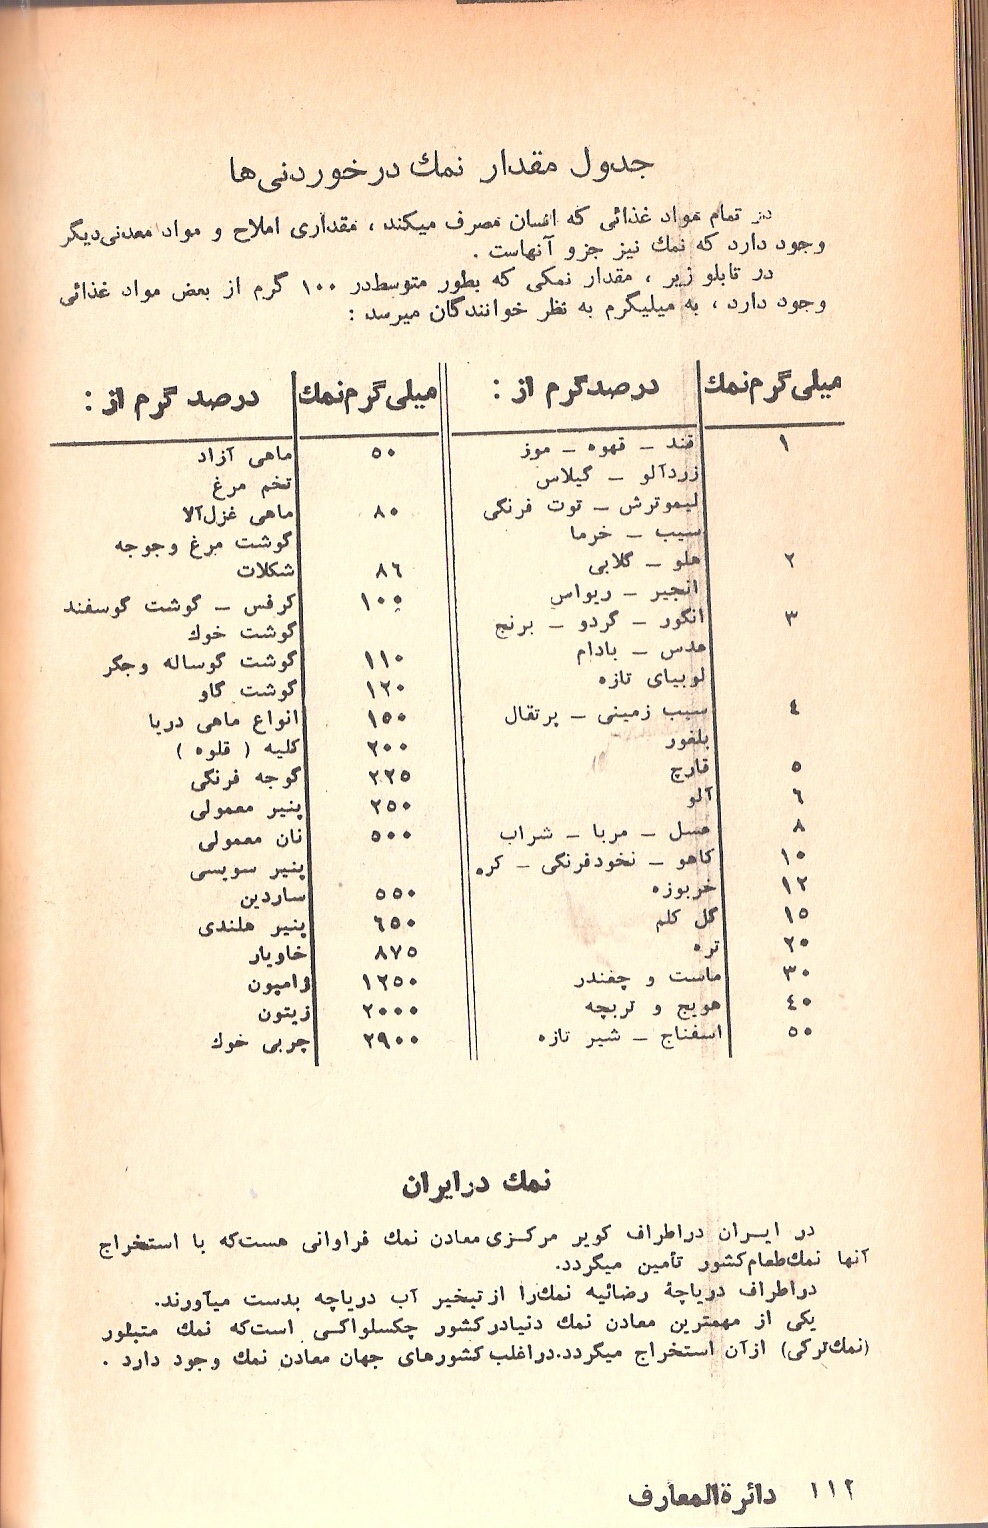 جدول مقدار نمك درخوردنی‌ها
در تمام مواد غذائی که انسان مصرف میکند ، مقداری املاح و مواد معدنی‌دیگر
وجود دارد که نمك نیز جزو آنهاست .
در تابلو زیر ، مقدار نمکی که بطور متوسط‌در ۱۰۰ گرم از بعض مواد غذائی
وجود دارد ، به میلیگرم به نظر خوانندگان میرسد :
میلی‌گرم‌نمك درصدگرم از :
۱ قند ـ قهوه ـ موز
زردآلو ـ گیلاس
لیموترش ـ توت فرنگی
سیب ـ خرما
۲ هلو ـ گلابی
انجیر ـ ریواس
۳ انگور ـ گردو ـ برنج
عدس ـ بادام
لوبیای تازه
٤ سیب زمینی ـ پرتقال
بلغور
۵ قارچ
٦ آلو
۸ عسل ـ مربا ـ شراب
۱۰ کاهو ـ نخودفرنگی ـ کره
۱۲ خربوزه
۱۵ گل کلم
۲۰ تره
۳۰ ماست و چغندر
٤۰ هویج و تربچه
۵۰ اسفناج ـ شیر تازه
میلی‌گرم‌نمك درصد گرم از :
۵۰ ماهی آزاد
تخم مرغ
۸۰ ماهی غزل‌آلا
گوشت مرغ وجوجه
۸٦ شکلات
۱۰۰ کرفس ـ گوشت گوسفند
گوشت خوك
۱۱۰ گوشت گوساله وجگر
۱۲۰ گوشت گاو
۱۵۰ انواع ماهی دریا
۲۰۰ کلیه ( قلوه )
۲۲۵ گوجه فرنگی
۲۵۰ پنیر معمولی
۵۰۰ نان معمولی
پنیر سویسی
۵۵۰ ساردین
٦۵۰ پنیر هلندی
۸۷۵ خاویار
۱۲۵۰ ژامبون
۲۰۰۰ زیتون
۲۹۰۰ چربی خوك
نمك درایران
در ایـران دراطراف کویر مرکـزی‌معادن نمك فراوانی هست‌که با استخراج
آنها نمك‌طعام‌کشور تأمین میگردد.
دراطراف دریاچهٔ رضائیه نمك‌را ازتبخیر آب دریاچه بدست میآورند.
یکی از مهمترین معادن نمك دنیادرکشور چکسلواکـی است‌که نمك متبلور
(نمك‌ترکی) ازآن استخراج میگردد.دراغلب‌کشورهای جهان معادن نمك وجود دارد .
۱۱۲ دائرةالمعارف